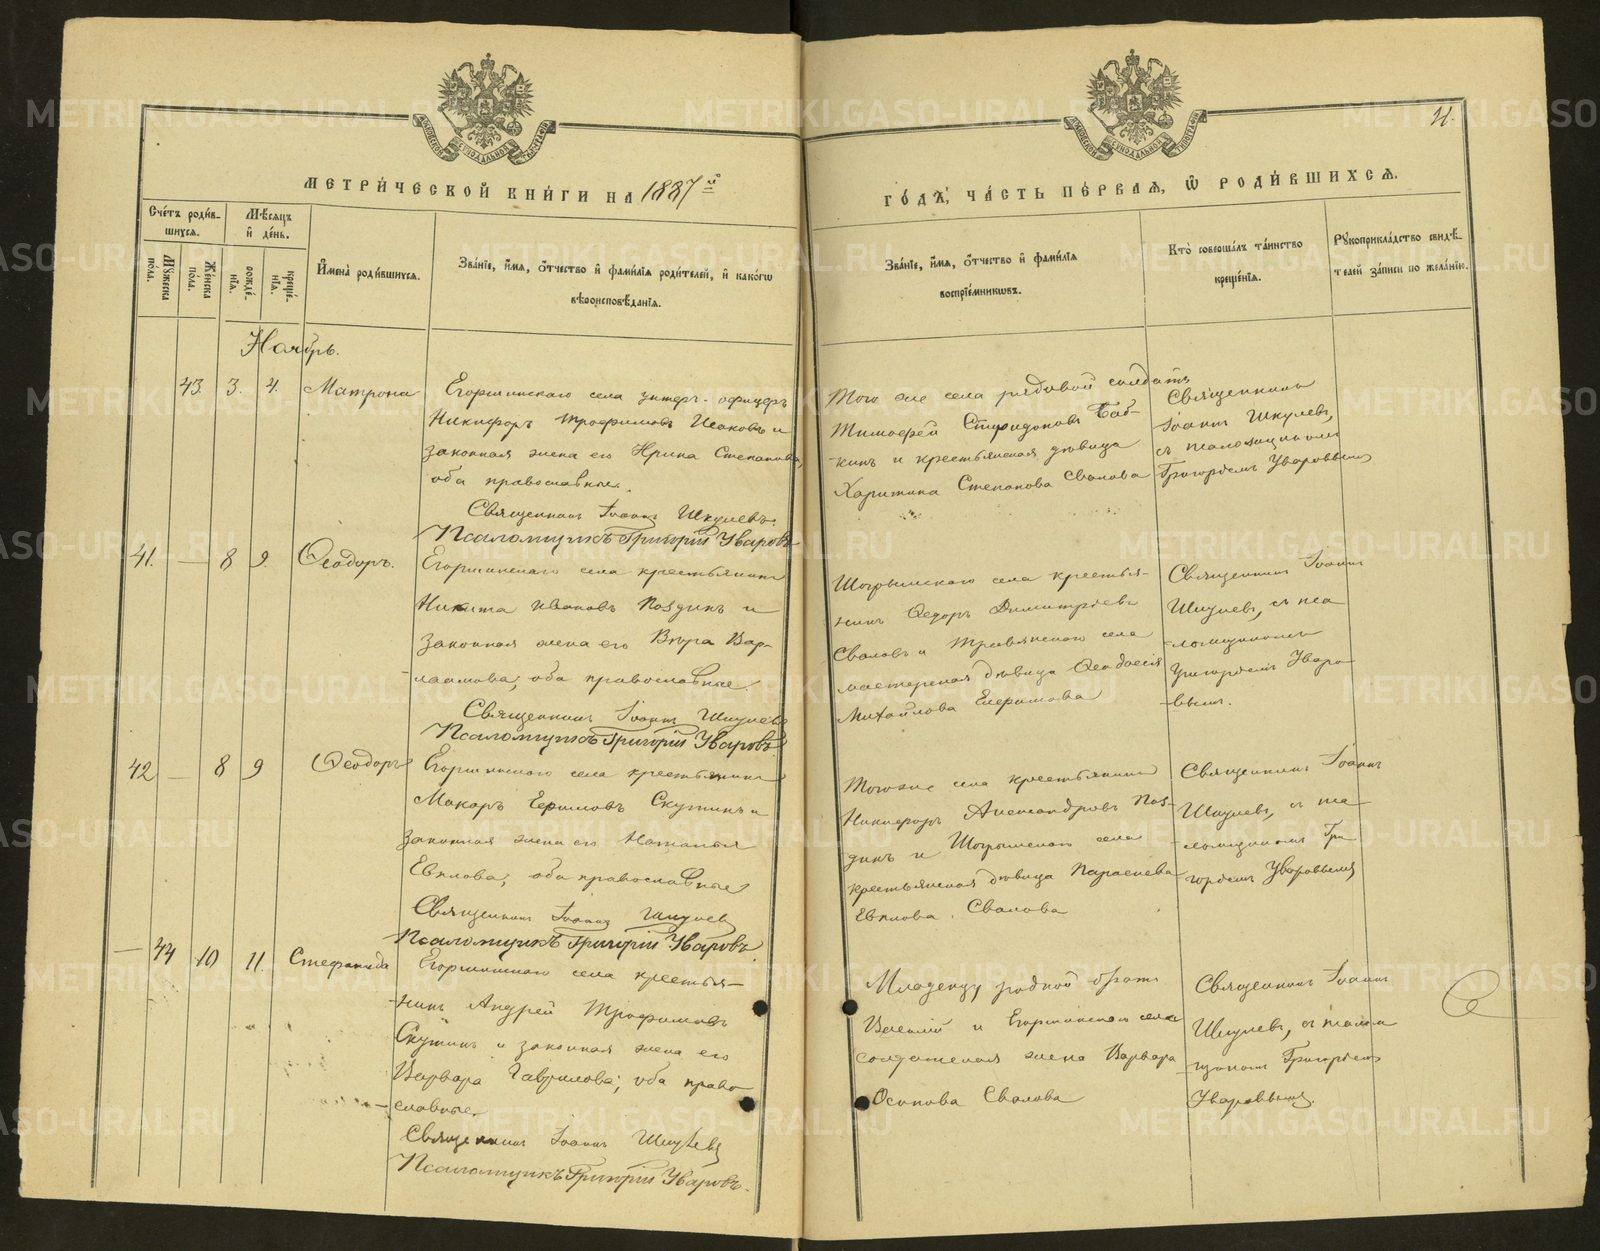 21.
МЕТРИ́ЧЕСКОЙ КНИ́ГИ НА 1887 й
ГО́ДЪ, ЧА́СТЬ ПЕ́РВАЯ, Ѡ РОДИ́ВШИХСЯ.
Сче́тъ роди́в-
шихся.
Му́жеска по́ла.
Же́нска по́ла.
Мѣ́сяцъ
и҆ де́нь.
рожде́-
нїя.
креще́-
нїя.
И҆мена̀ роди́вшихся.
Зва́нїе, и҆́мя, ѻ҆́тчество и҆ фами́лїя роди́телей, и҆ како́гѡ
вѣроисповѣ́данїя.
Зва́нїе, и҆́мя, ѻ҆́тчество и҆ фами́лїя
воспрїе́мникѡвъ.
Кто̀ соверша́лъ та́инство
креще́нїя.
Рꙋкоприкла́дство свидѣ́-
телей за́писи по жела́нїю.
Ноябрь.
43. 3. 4. Матрона
Егоршинскаго села унтеръ-офицеръ
Никифоръ Трофимовъ Исаковъ и
законная жена его Ирина Степанова,
оба православные.
Священникъ Іоаннъ Шкулевъ.
Псаломщикъ Григорій Уваровъ
Того же села рядовой солдатъ
Тимофей Спиридоновъ Баб-
кинъ и крестьянская дѣвица
Харитина Степанова Свалова
Священникъ
Іоаннъ Шкулевъ,
съ псаломщикомъ
Григоріемъ Уваровымъ
41. — 8 9. Ѳеодоръ.
Егоршинскаго села крестьянинъ
Никита Ивановъ Поздинъ и
законная жена его Вѣра Вар-
лаамова, оба православные.
Священникъ Іоаннъ Шкулевъ
Псаломщикъ Григорій Уваровъ
Шогрышскаго села крестья-
нинъ Ѳедоръ Димитріевъ
Сваловъ и Травянскаго села
мастерская дѣвица Ѳеодосія
Михайлова Ефимова
Священникъ Іоаннъ
Шкулевъ, съ пса
-ломщикомъ
Григоріемъ Уваро-
-вымъ.
42 — 8 9 Ѳеодоръ
Егоршинскаго села крестьянинъ
Макаръ Ефимовъ Скутинъ и
законная жена его Наталья
Евплова, оба православные
Священникъ Іоаннъ Шкулевъ
Псаломщикъ Григорій Уваровъ.
Того же села крестьянинъ
Никифоръ Александровъ Поз-
динъ и Шогрышскаго села
крестьянская дѣвица Параскева
Евплова Свалова
Священникъ Іоаннъ
Шкулевъ, съ пса
-ломщикомъ Гри
горіемъ Уваровымъ
— 44 10 11. Стефанида
Егоршинскаго села крестья-
-нинъ Андрей Трофимовъ
Скутинъ и законная жена его
Варвара Гаврилова; оба право
славные.
Священникъ Іоаннъ Шкулевъ
Псаломщикъ Григорій Уваровъ.
Младенцу родной братъ
Василій и Егоршинскаго села
солдатская жена Варвара
Осипова Свалова
Священникъ Іоаннъ
Шкулевъ, съ псалом
-щикомъ Григоріемъ
Уваровымъ.
METRIKI.GASO-URAL.RU